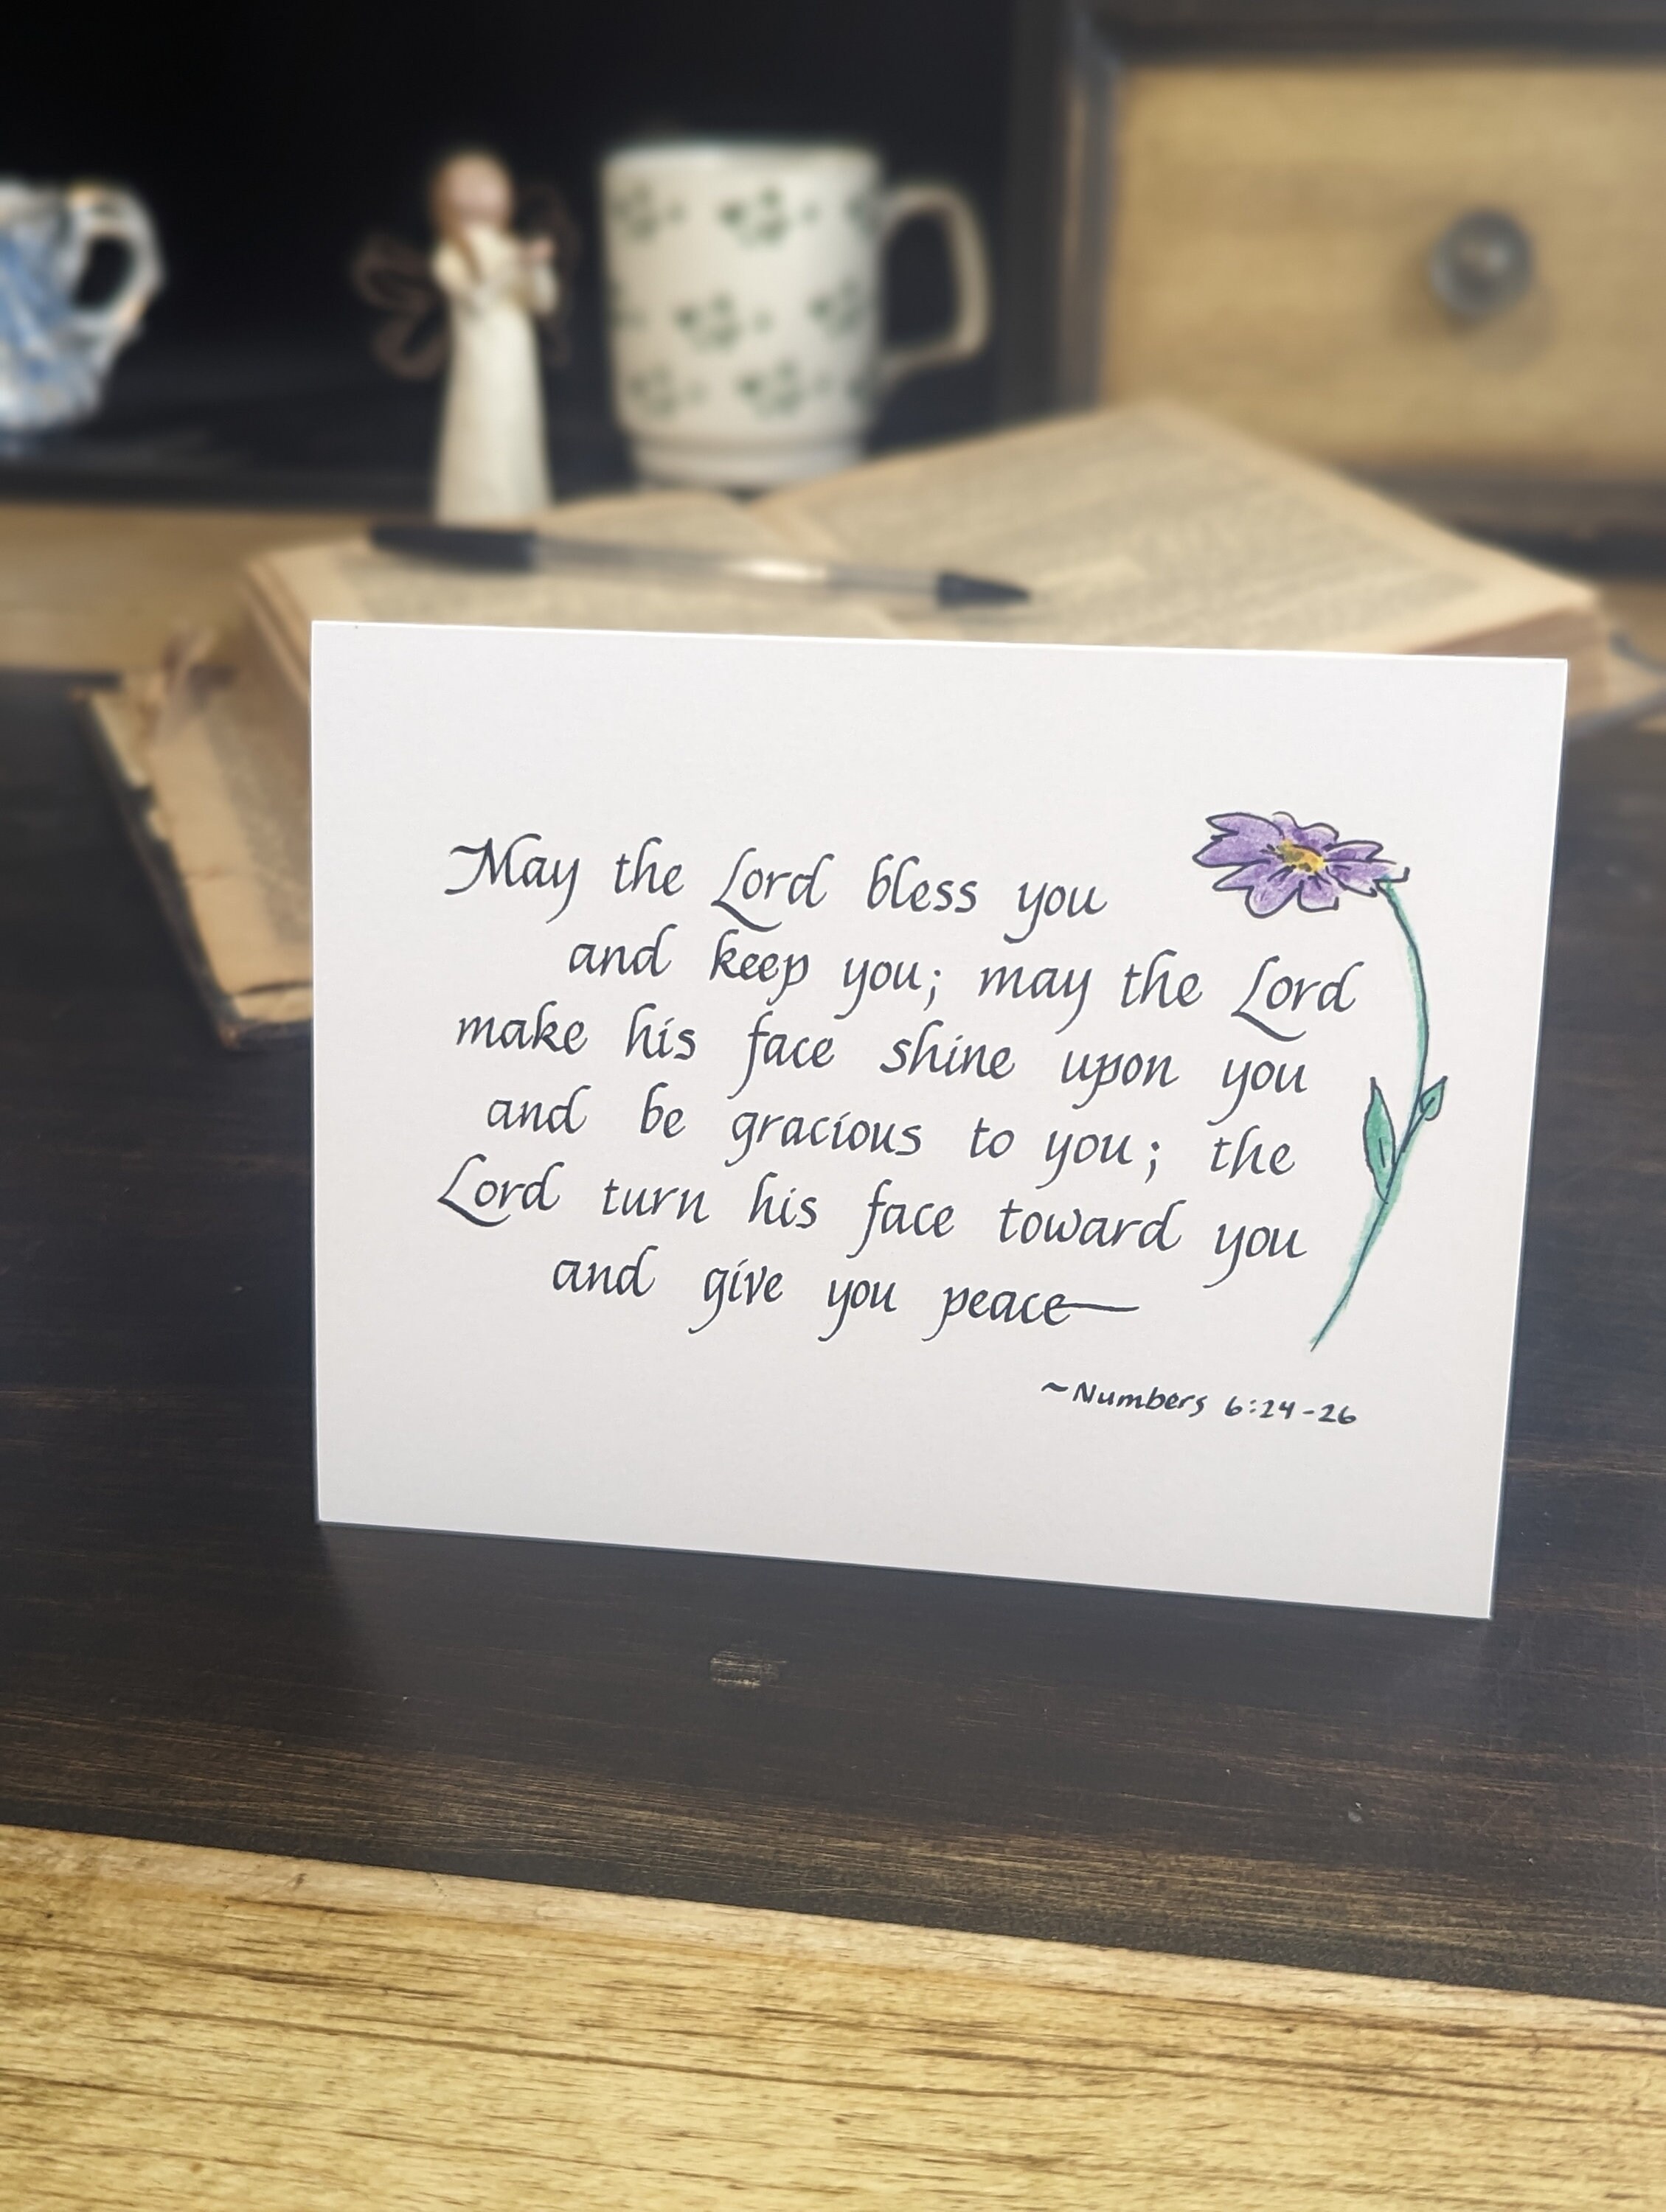 May the Lord bless you
and keep you; may the Lord
make his face shine upon you
and be gracious to you; the
Lord turn his face toward you
and give you peace—
~Numbers 6:24-26